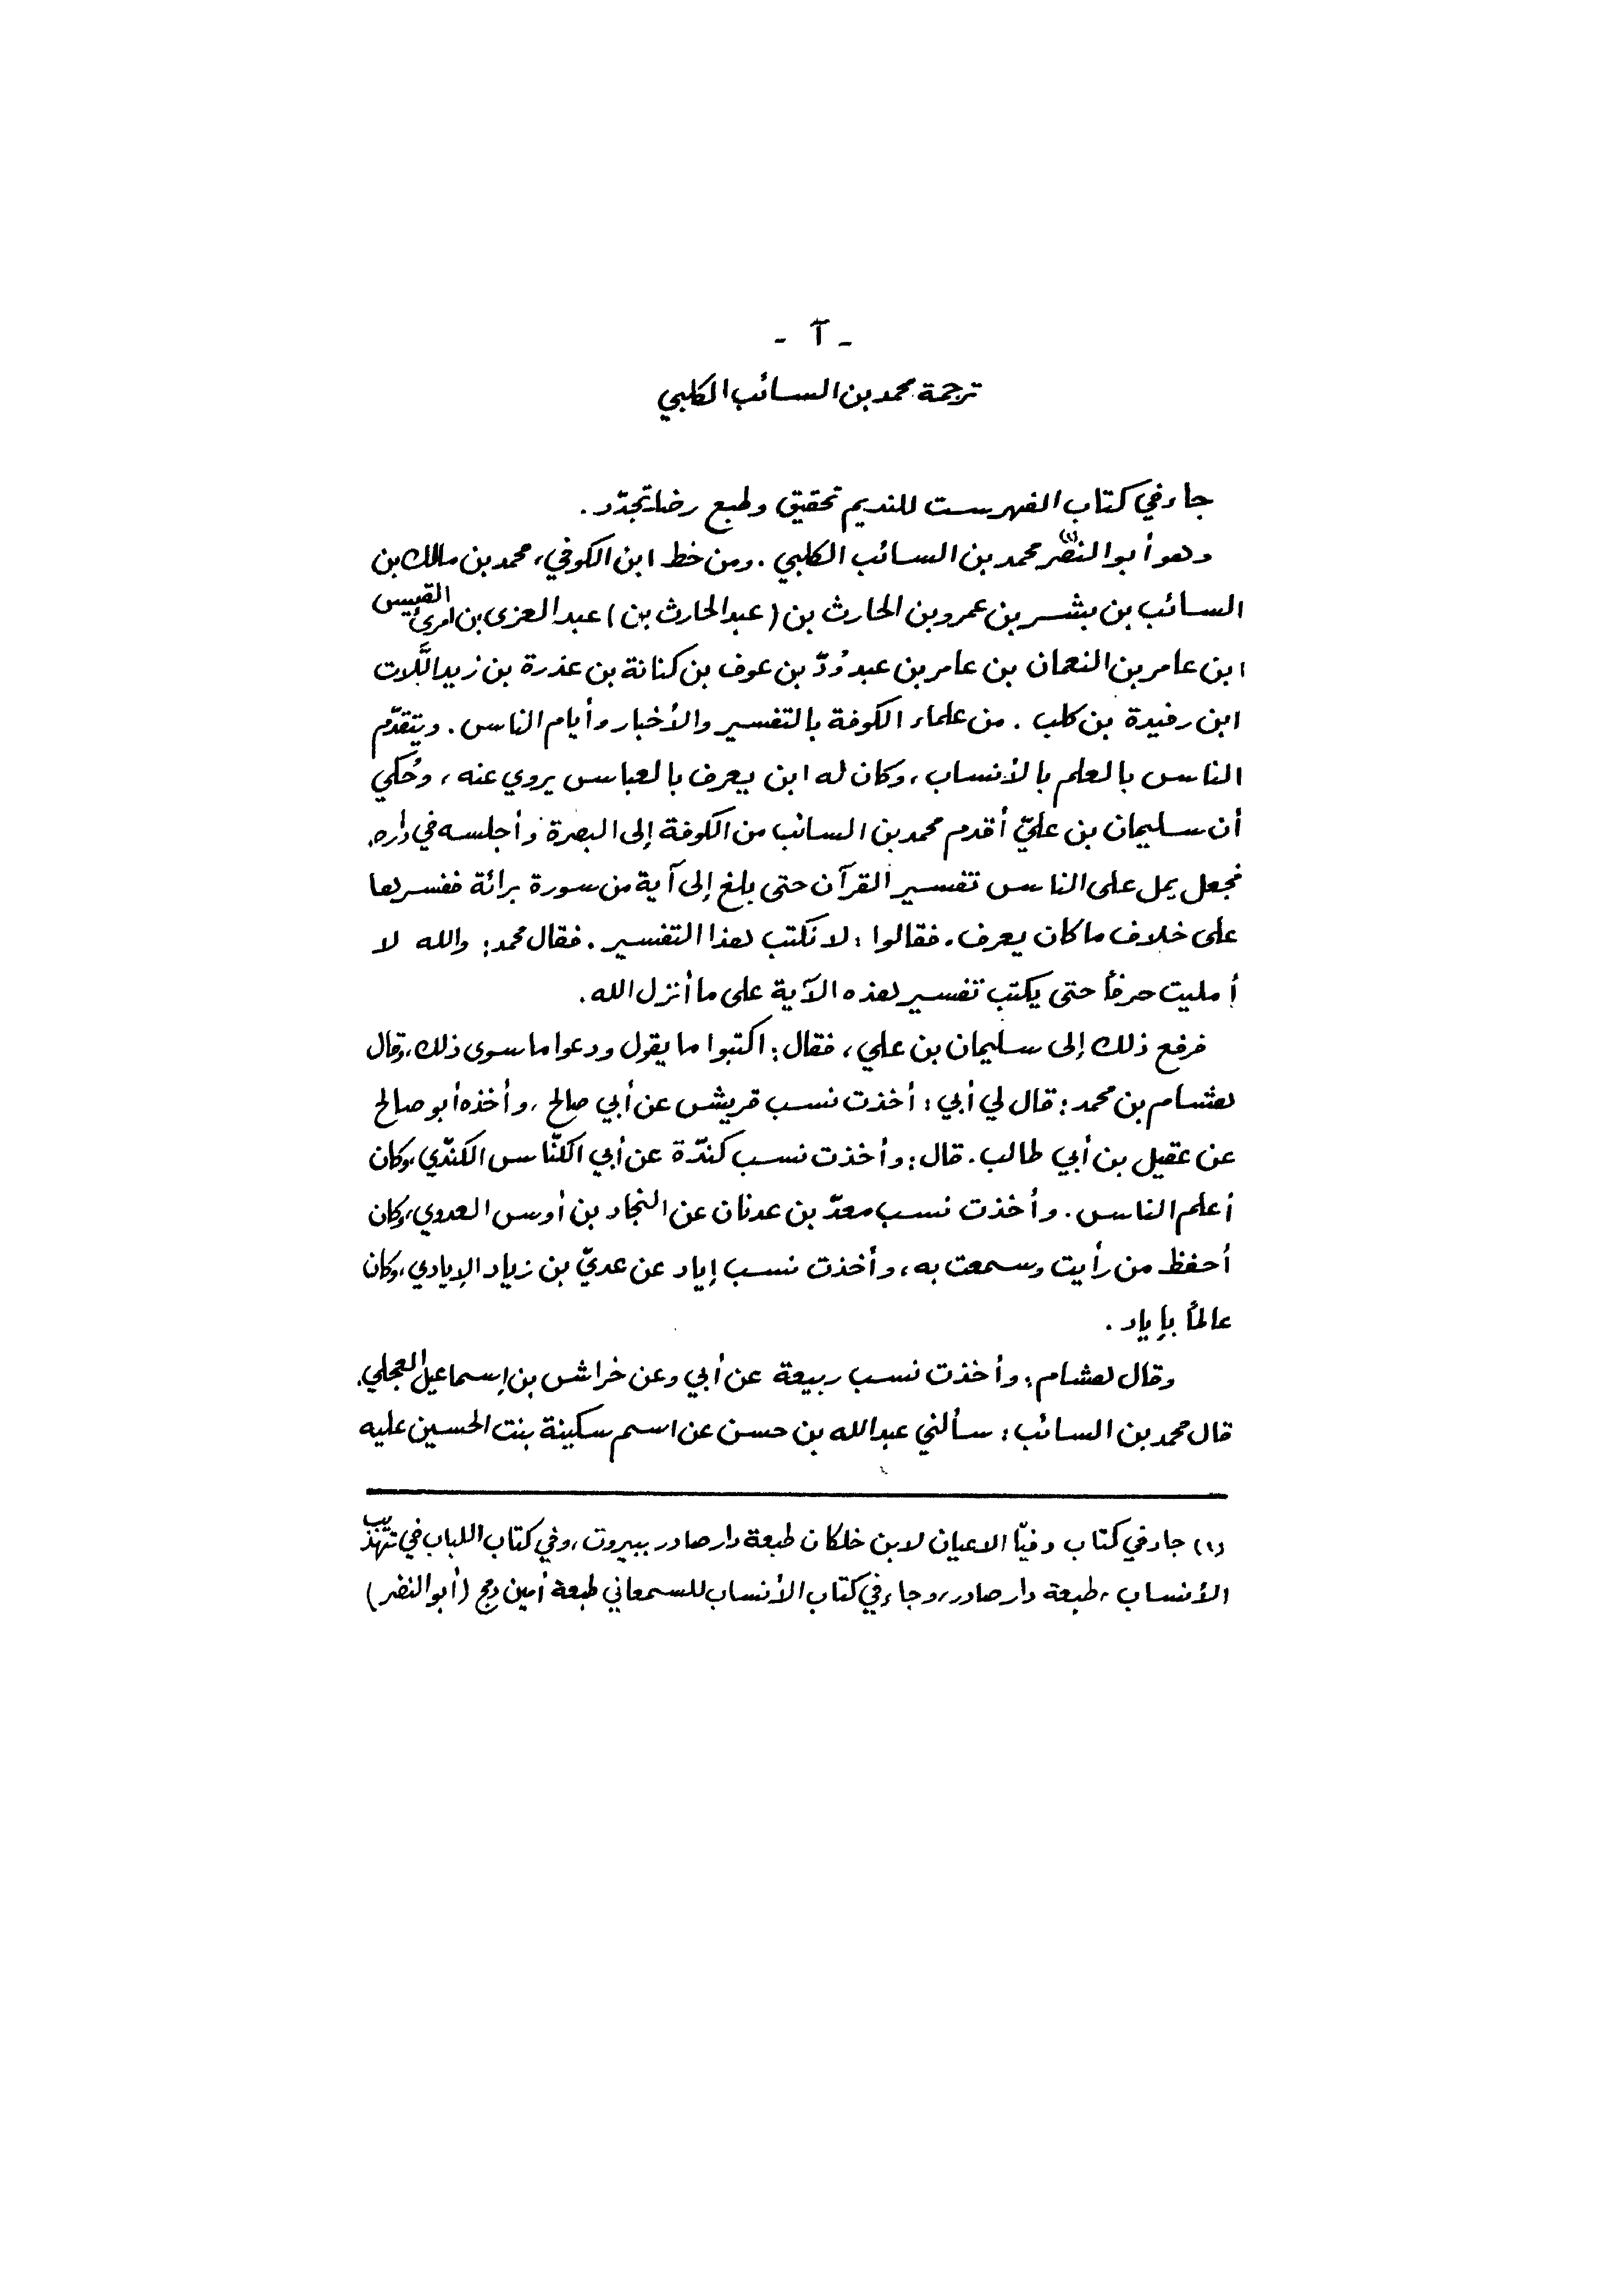 - آ -
ترجمة محمد بن السائب الكلبي
جاء في كتاب الفهرست للنديم تحقيق وطبع رضا تجدّد .
وهو أبو النضر(١) محمد بن السائب الكلبي . ومن خط ابن الكوفي، محمد بن مالك بن
السائب بن بشر بن عمرو بن الحارث بن ( عبد الحارث بن ) عبد العزى بن امرئ القيس
ابن عامر بن النعمان بن عامر بن عبد وُدّ بن عوف بن كنانة بن عذرة بن زيد اللَّلات
ابن رفيدة بن كلب . من علماء الكوفة بالتفسير والأخبار وأيام الناس . ويتقدّم
الناس بالعلم بالأنساب ، وكان له ابن يعرف بالعباس يروي عنه ، وحُكي
أن سليمان بن عليّ أقدم محمد بن السائب من الكوفة إلى البصرة وأجلسه في داره،
فجعل يمل على الناس تفسير القرآن حتى بلغ إلى آية من سورة برائة ففسرها
على خلاف ما كان يعرف . فقالوا : لا نكتب هذا التفسير . فقال محمد : والله لا
أمليت حرفاً حتى يكتب تفسير هذه الآية على ما أنزل الله .
فرفع ذلك إلى سليمان بن علي ، فقال : اكتبوا ما يقول ودعوا ما سوى ذلك ، وقال
هشام بن محمد : قال لي أبي : أخذت نسب قريش عن أبي صالح ، وأخذه أبو صالح
عن عقيل بن أبي طالب . قال : وأخذت نسب كندّة عن أبي الكنّاس الكندّي ، وكان
أعلم الناس . وأخذت نسب معدّ بن عدنان عن النجاد بن أوس العدوي ، وكان
أحفظ من رأيت وسمعت به ، وأخذت نسب إياد عن عديّ بن زياد الإيادي ، وكان
عالماً بإياد .
وقال هشام : وأخذت نسب ربيعة عن أبي وعن خراش بن إسماعيل العجلي .
قال محمد بن السائب : سألني عبد الله بن حسن عن اسم سكينة بنت الحسين عليه
(١) جاء في كتاب وفيّا الاعيان لابن خلكان طبعة دار صادر ببيروت ، وفي كتاب اللباب في تهذيب
الأنساب ، طبعة دار صادر ، وجاء في كتاب الأنساب للسمعاني طبعة أمين دمج (أبو النضر)